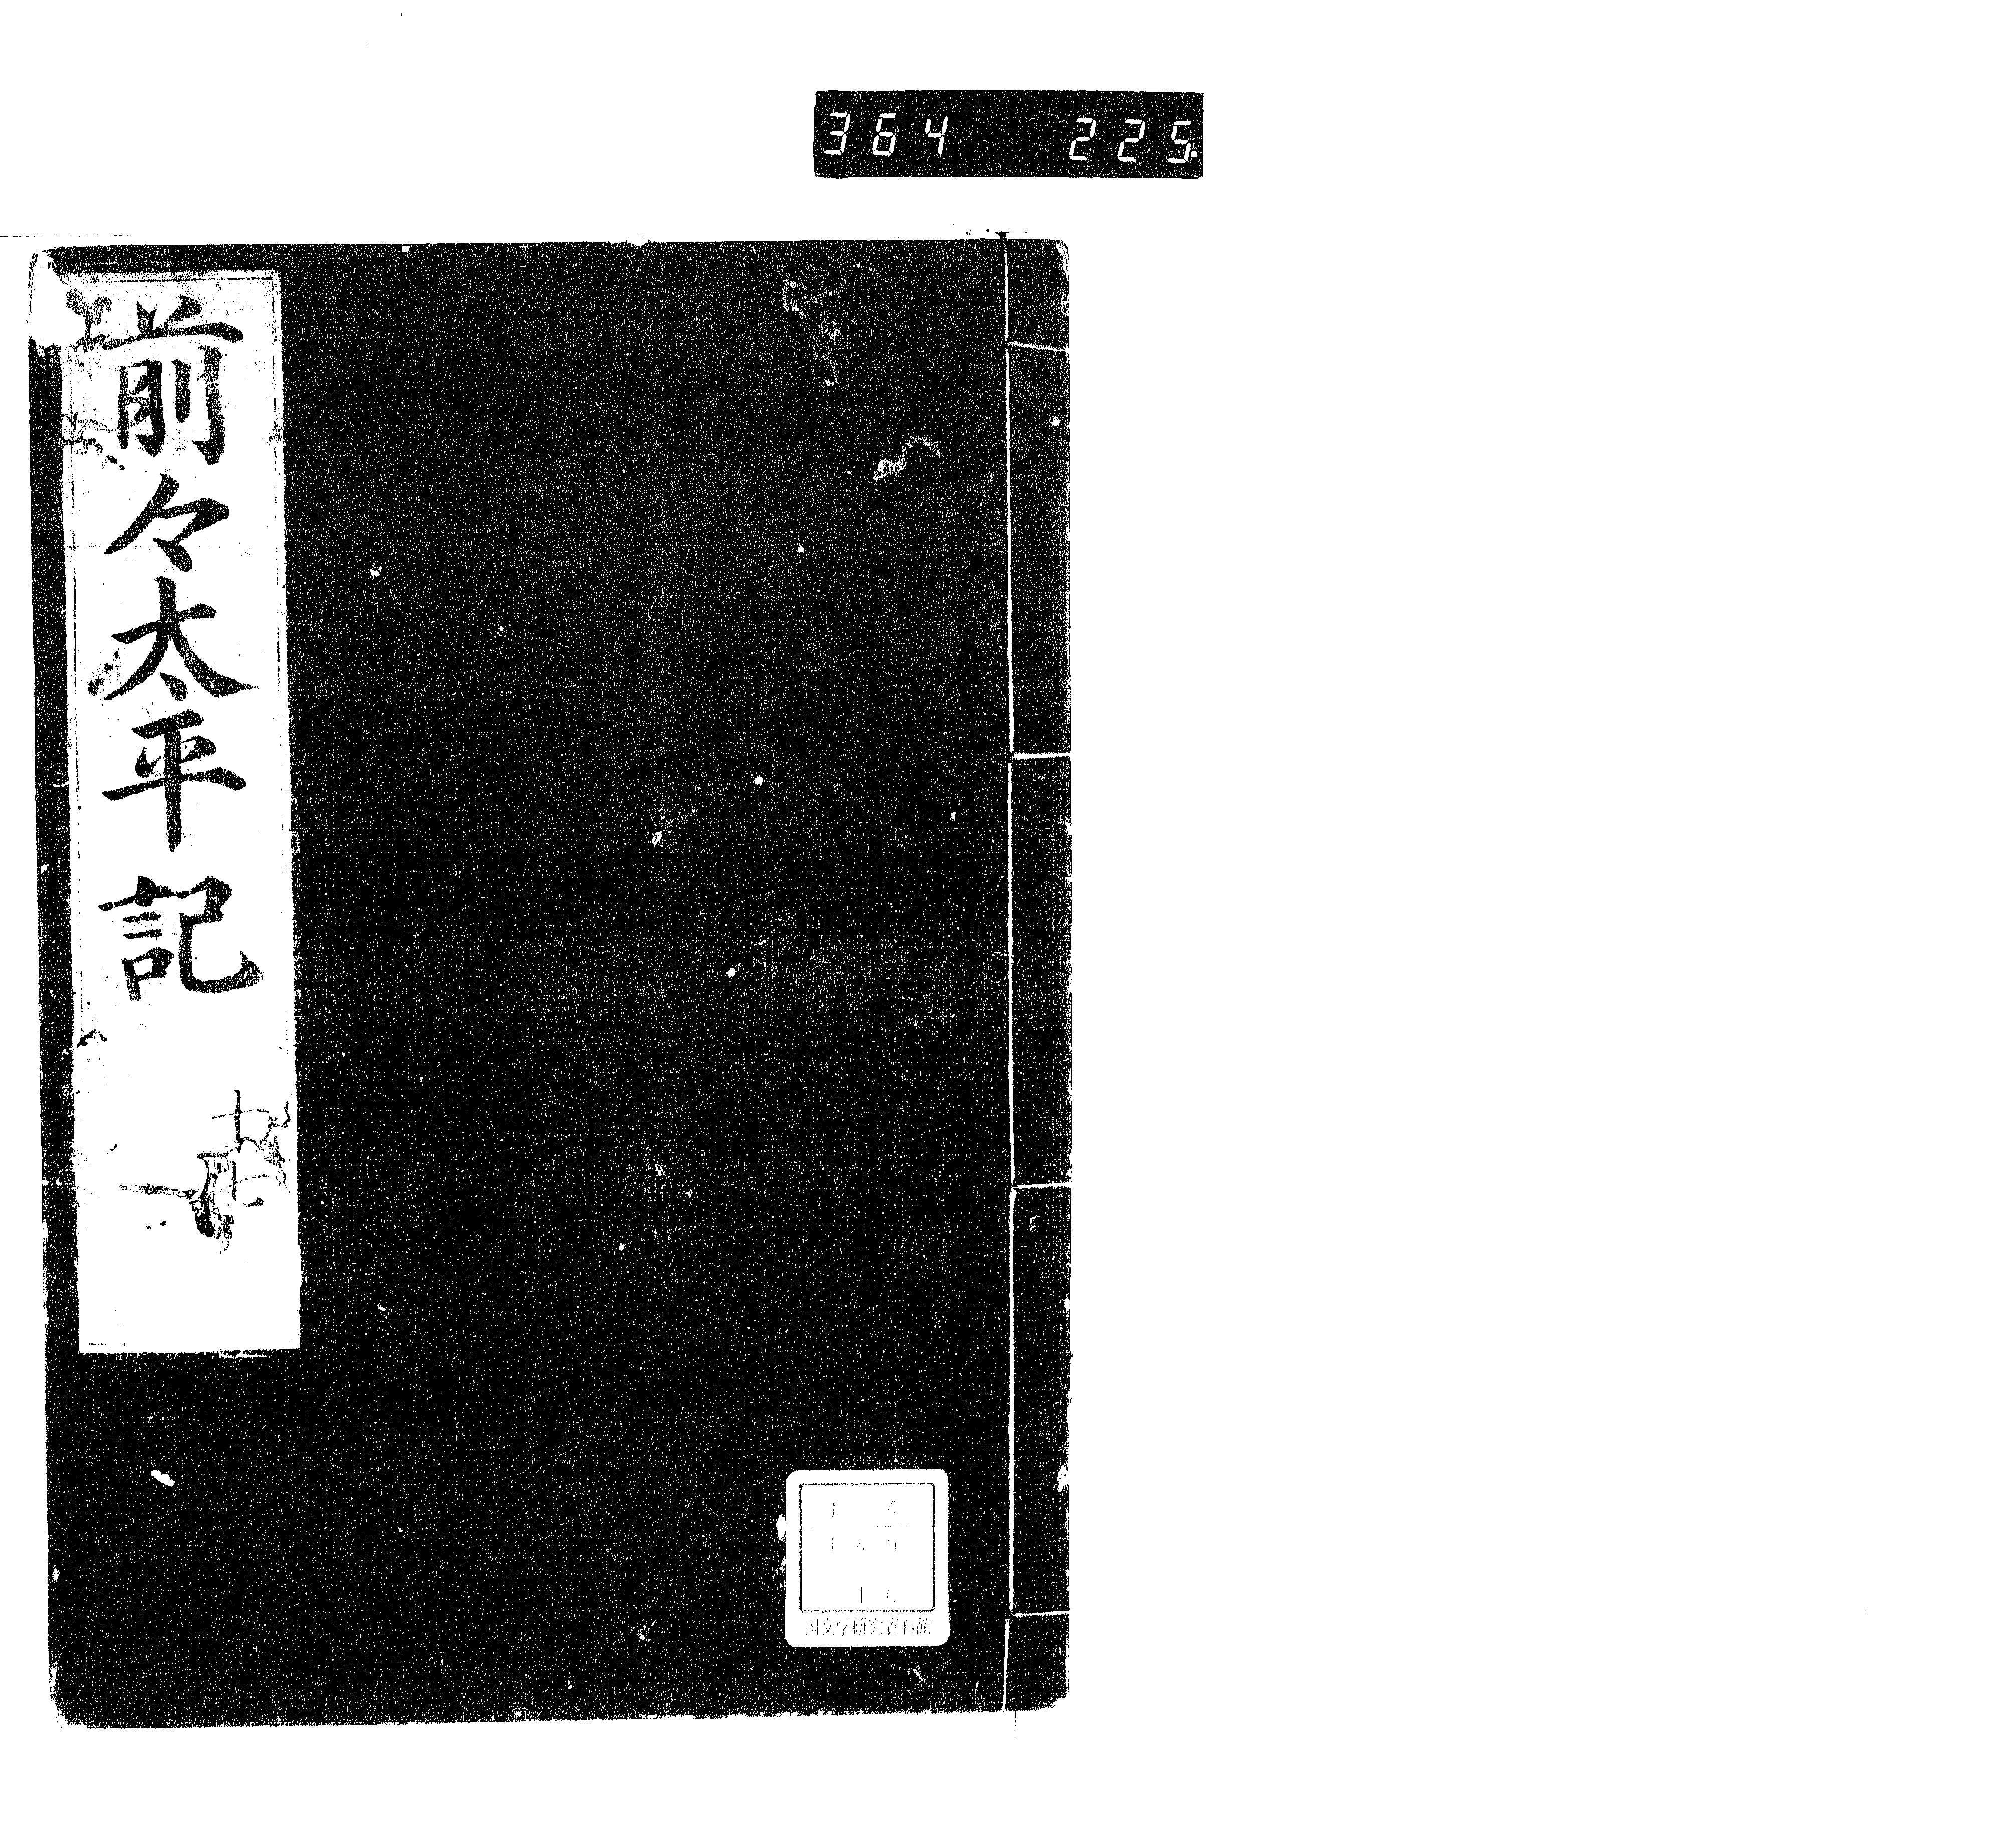 364 225
前々太平記
国文学研究資料館